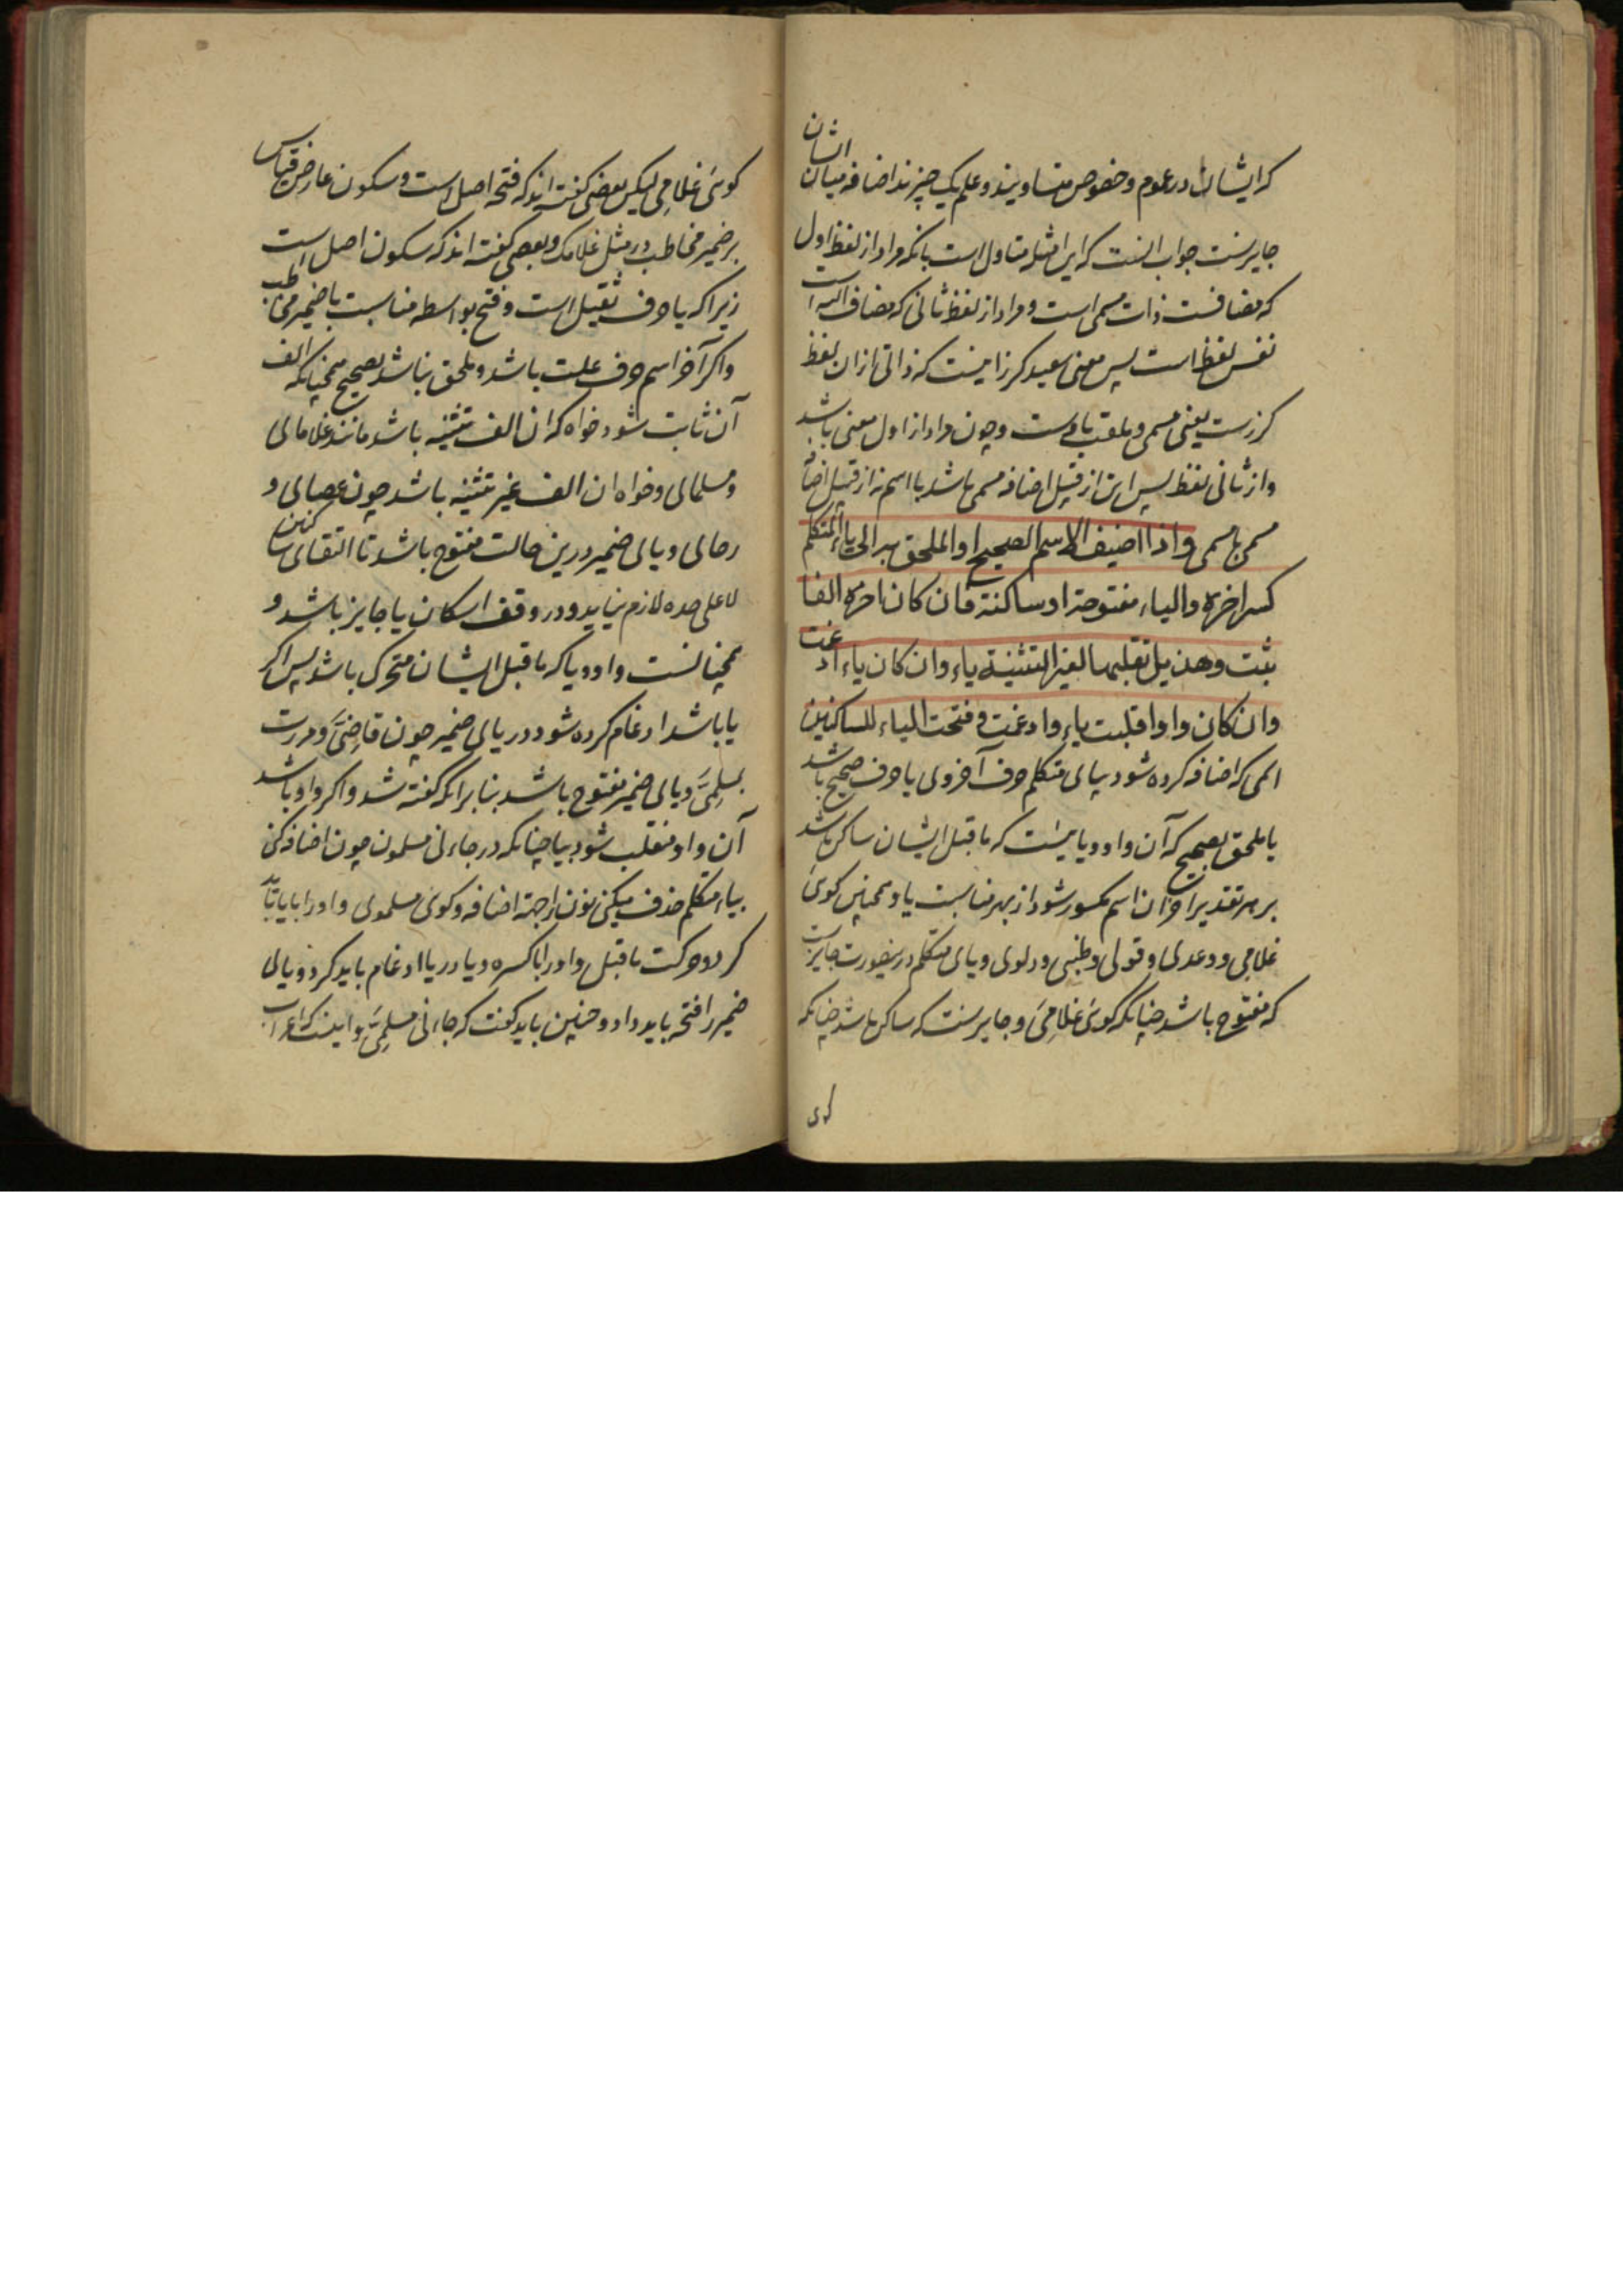 که ایشان در عموم و خصوص متساویند و علم یک چیزند اضافه میان ایشان
جایز نیست جواب آنست که این امثله متاول است بانکه مراد از لفظ اول
که مضافست ذات مسمی است و مراد از لفظ ثانی که مضاف الیه است
نفس لفظ است پس معنی سعید کرز اینست که ذاتی از ان لفظ
کرزست یعنی مسمی و ملقب باوست و چون مراد از اول معنی باشد
و از ثانی لفظ پس این از قبیل اضافه مسمی باشد با اسم نه از قبیل اضافه
مسمی با مسمی واذا اضیف الاسم الصحیح او الملحق به الی یاء المتکلم
کسر اخره والیاء مفتوحة او ساکنة فان کان اخره الفا
تثبت وهذیل تقلبها لغیر التثنیة یاء وان کان یاء ادغمت
وان کان واوا قلبت یاء وادغمت وفتحت الیاء للساکنین
اسمی که اضافه کرده شود بیای متکلم حرف آخر وی یا حرف صحیح باشد
یا ملحق بصحیح که آن واو و یاییست که ماقبل ایشان ساکن باشد
بر هر تقدیر آخر ان اسم مکسور شود از بهر مناسبت یا و همچنین کوئی
غلامی و وعدی و قولی و ظبیی و دلوی و یای متکلم درینصورت جایزست
که مفتوح باشد چنانکه کوئی غلامِیَ و جایزست که ساکن باشد چنانکه
کوی
کوئی غلامِی لیکن بعضی کفته اند که فتحه اصل است و سکون عارض قیاس
بر ضمیر مخاطب در مثل غلامک و بعضی کفته اند که سکون اصل است
زیرا که یا حرف ثقیل است و فتح بواسطه مناسبت با ضمیر مخاطب
و اکر آخر اسم حرف علت باشد و ملحق نباشد بصحیح همچنانکه الف
آن ثابت شود خواه که ان الف تثنیه باشد مانند غلامای
و مسلمای و خواه ان الف غیر تثنیه باشد چون عصای و
رحای و یای ضمیر درین حالت مفتوح باشد تا التقای ساکنین
لا علی حده لازم نیاید و در وقف اسکان یا جایز باشد و
همچنانست واو و یا که ماقبل ایشان متحرک باشد پس اکر
یا باشد ادغام کرده شود در یای ضمیر چون قاضِیَّ و مررت
بمسلِمِیَّ و یای ضمیر مفتوح باشد بنا برانکه کفته شد و اکر واو باشد
آن واو منقلب شود بیا چنانکه در جاءنی مسلمون چون اضافه کنی
بیاء متکلم حذف میکنی نون را جهة اضافه و کوئی مسلموی واو را بیا باید
کرد و حرکت ماقبل واو را با کسره و یا در یا ادغام باید کرد و یای
ضمیر را فتحه باید داد و چنین باید کفت که جاءنی مسلِمِیَّ و اینست که اعراب